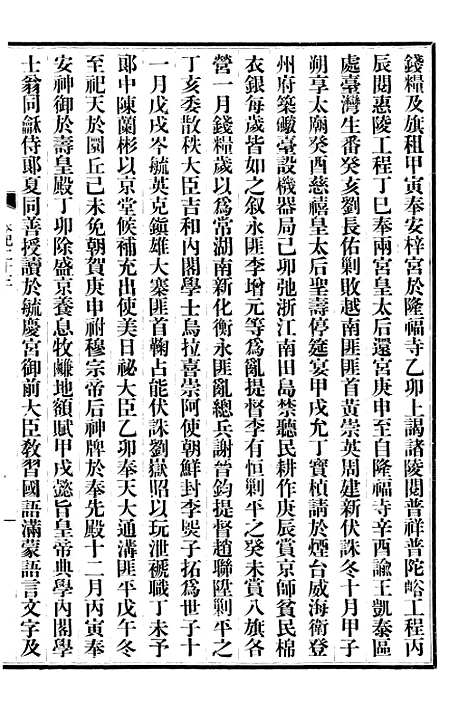 錢糧及旗租甲寅奉安梓宮於隆福寺乙卯上謁諸陵閱普祥普陀峪工程丙
辰閱惠陵工程丁巳奉兩宮皇太后還宮庚申至自隆福寺辛酉諭王凱泰區
處臺灣生番癸亥劉長佑剿敗越南匪匪首黃崇英周建新伏誅冬十月甲子
朔享太廟癸酉慈禧皇太后聖壽停筵宴甲戌允丁寶楨請於煙台威海衛登
州府築礮臺設機器局己卯弛浙江南田島禁聽民耕作庚辰賞京師貧民棉
衣銀每歲皆如之叙永匪李增元等爲亂提督李有恒剿平之癸未賞八旗各
營一月錢糧歲以爲常湖南新化衡永匪亂總兵謝晉鈞提督趙聯陞剿平之
丁亥委散秩大臣吉和內閣學士烏拉喜崇阿使朝鮮封李熙子拓爲世子十
一月戊戌岑毓英克鎭雄大寨匪首鞠占能伏誅劉嶽昭以玩泄褫職丁未予
郎中陳蘭彬以京堂候補充出使美日祕大臣乙卯奉天大通溝匪平戊午冬
至祀天於圜丘己未免朝賀庚申祔穆宗帝后神牌於奉先殿十二月丙寅奉
安神御於壽皇殿丁卯除盛京養息牧鹻地額賦甲戌懿旨皇帝典學內閣學
士翁同龢侍郎夏同善授讀於毓慶宮御前大臣敎習國語滿蒙語言文字及
本紀二十三
一